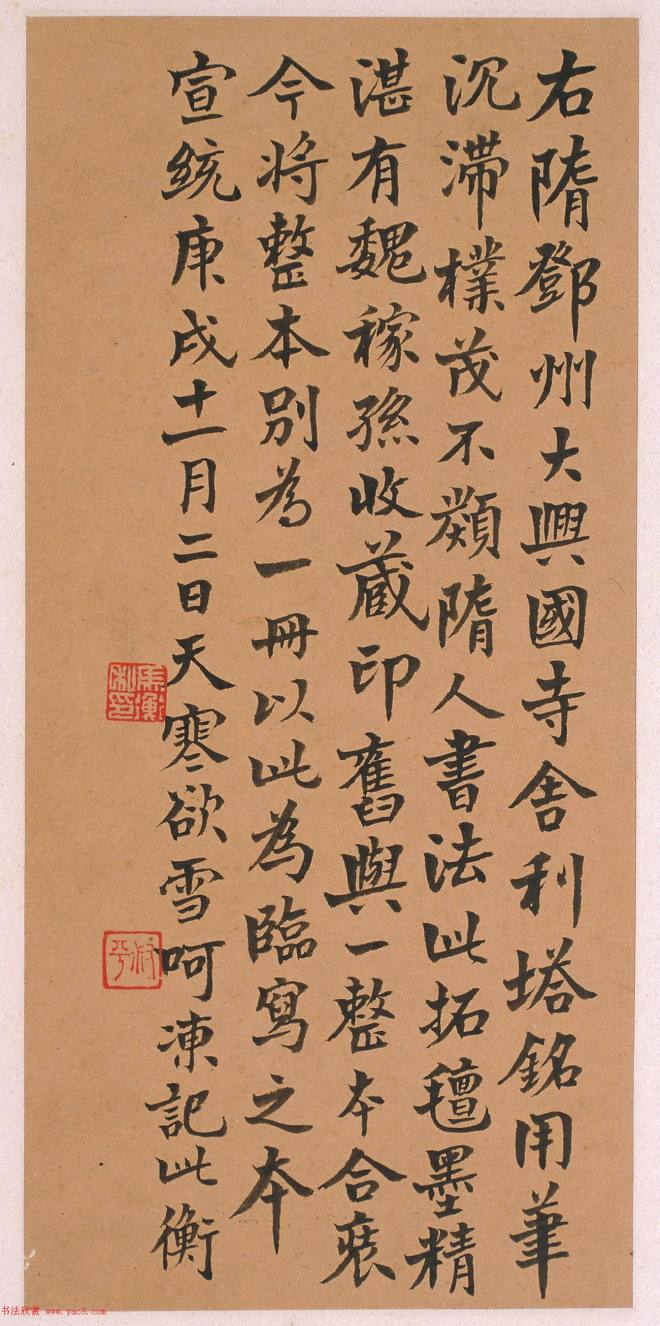 右隋鄧州大興國寺舍利塔銘用筆
沉滯樸茂不類隋人書法此拓氊墨精
湛有魏稼孫收藏印舊與一整本合裱
今將整本別為一冊以此為臨寫之本
宣統庚戌十一月二日天寒欲雪呵凍記此衡
馬衡私印
叔平
书法欣赏 www.yac8.com